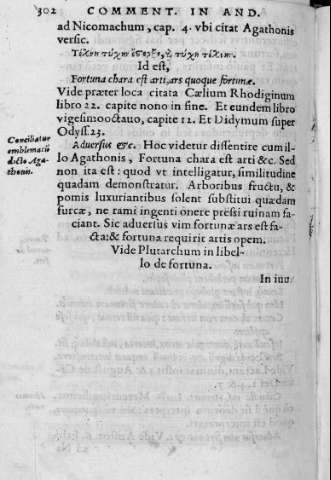 302 COMMENT. IN AND.
ad Nicomachum, cap. 4. vbi citat Agathonis
versic.
Τέχνη τύχην ἔστερξε, καὶ τύχη τέχνην.
Id est,
Fortuna chara est arti, ars quoque fortunæ.
Vide præter loca citata Cælium Rhodiginum
libro 22. capite nono in fine. Et eundem libro
vigesimooctauo, capite 12. Et Didymum super
Odyss 23.
Conciliatur
emblematis
dicto Aga-
thonis.
Aduersus &c. Hoc videtur dissentire cum il-
lo Agathonis, Fortuna chara est arti &c. Sed
non ita est: quod vt intelligatur, similitudine
quadam demonstratur. Arboribus fructu, &
pomis luxuriantibus solent substitui quædam
furcæ, ne rami ingenti onere pressi ruinam fa-
ciant. Sic aduersus vim fortunæ ars est fa-
cta: & fortuna requirit artis opem.
Vide Plutarchum in libel-
lo de fortuna.
In iuu